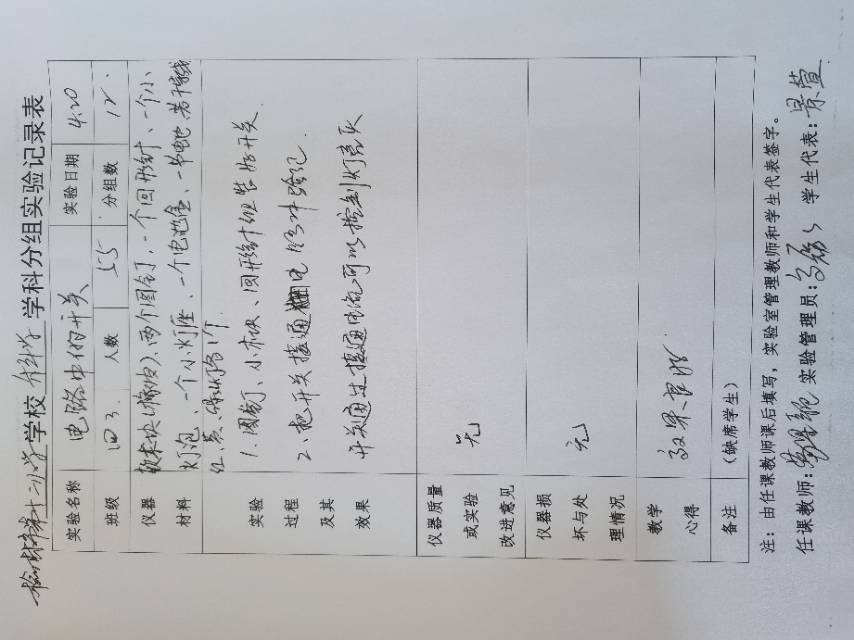 榆林市第十二小学学校 科学 学科分组实验记录表
实验名称 电路中的开关 实验日期 4.20
班级 四3. 人数 55 分组数 12.
仪器 小木块(橡皮)、两个图钉、一个回形针、一个小
材料 灯泡、一个小灯座、一个电池盒、一节电池、若干导线
红、黄、绿灯各1个
实验 1、图钉、小木块、回形针组装成开关.
过程 2、把开关接通电
及其
效果 开关通过接通电流可以控制灯亮灭
仪器质量
或实验 无
改进意见
仪器损
坏与处 无
理情况
教学
心得 效果良好
备注 (缺席学生)
注：由任课教师课后填写，实验室管理教师和学生代表签字。
任课教师: 实验管理员: 学生代表: 景萱